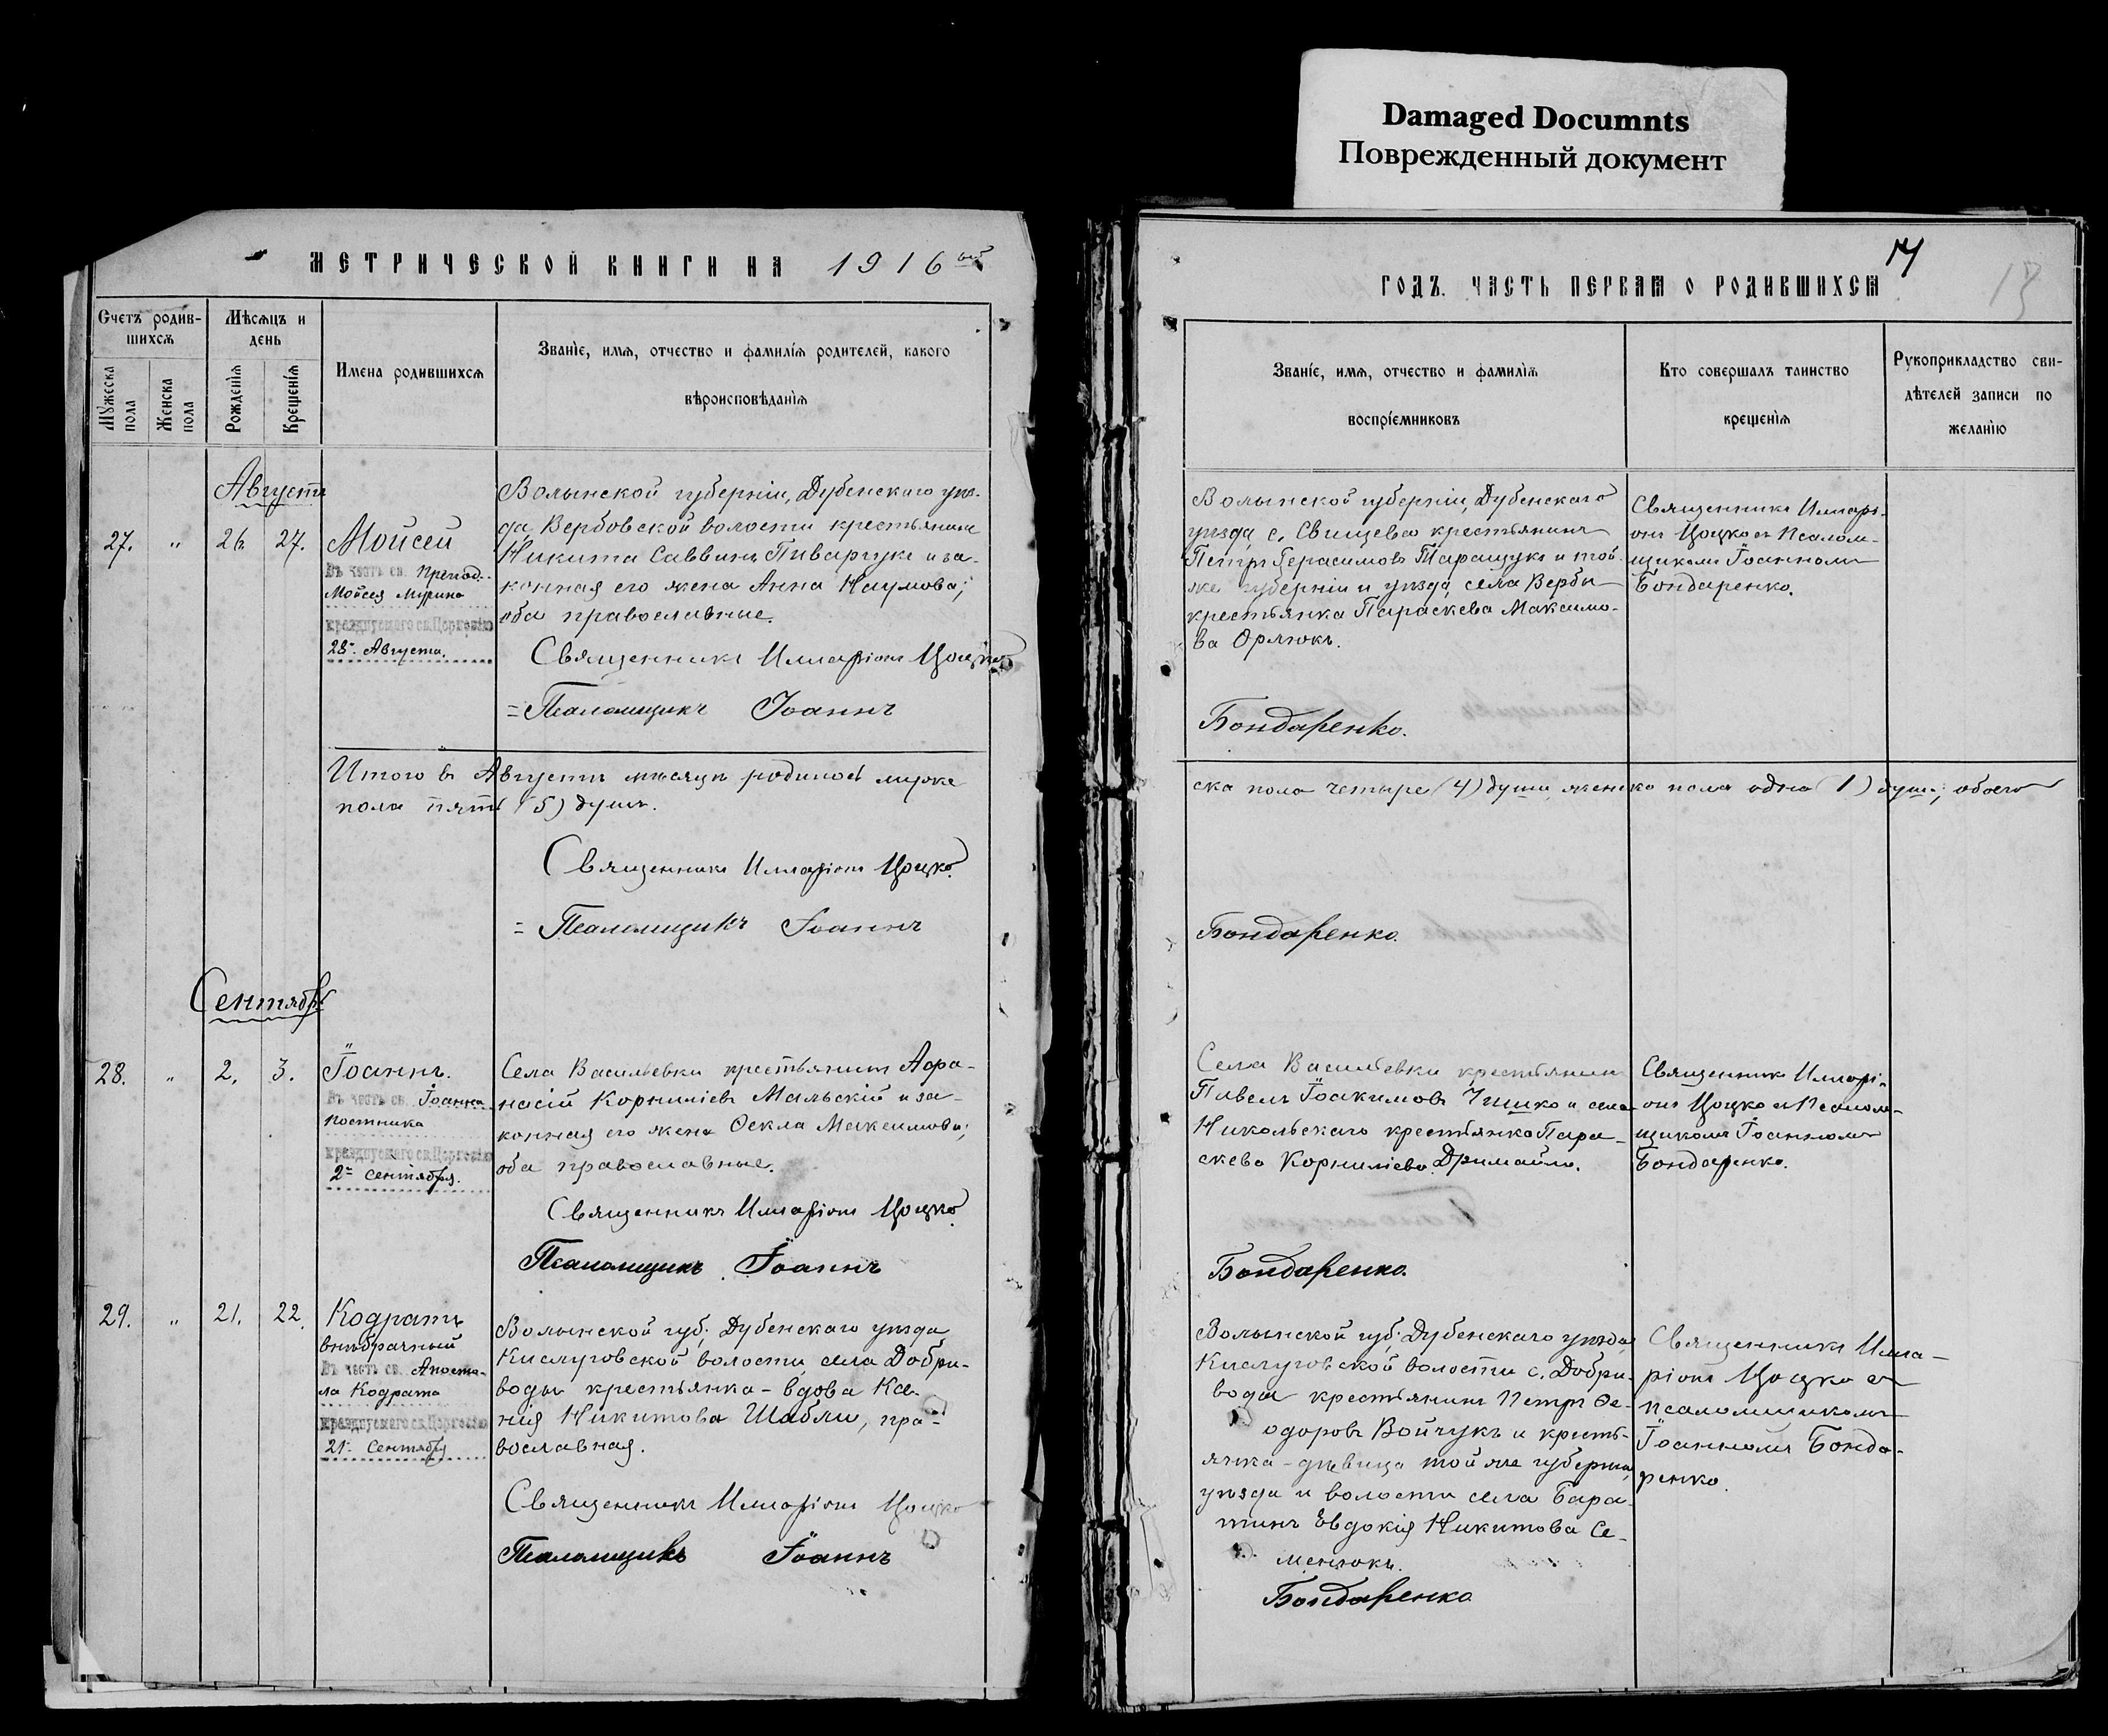 Damaged Documnts
Поврежденный документ
МЕТРИЧЕСКОЙ КНИГИ НА 1916 ый
Счетъ родив-
шихсѧ
Мужеска пола
Женска пола
Мѣсѧцъ и
день
Рожденїѧ
Крещенїѧ
Имена родившихсѧ
Званїе, имѧ, отчество и фамилїѧ родителей, какого
вѣроисповѣданїѧ
Августъ
27. " 26 27.
Мойсей
Въ честь св. Препод.
Мойсея Мурина
празднуемаго св. Церковію
28го Августа.
Волынской губерніи, Дубенскаго уѣз-
да, Вербовской волости крестьянинъ
Никита Саввинъ Пиварчукъ и за-
конная его жена Анна Наумова;
оба православные.
Священникъ Илларіонъ Цоцко
= Псаломщикъ Іоаннъ
Итого въ Августѣ мѣсяцѣ родилось муже
пола пять (5) душъ.
Священникъ Илларіонъ Цоцко.
= Псаломщикъ Іоаннъ
Сентябрь
28. " 2. 3.
Іоаннъ.
Въ честь св. Іоанна
постника
празднуемаго св. Церковію
2го сентября.
Села Васильевки крестьянинъ Аѳа-
насій Корниліевъ Мальскій и за-
конная его жена Ѳекла Максимова;
оба православные.
Священникъ Илларіонъ Цоцко.
Псаломщикъ Іоаннъ
29. " 21. 22.
Кодратъ
внѣбрачный
Въ честь св. Апосто-
ла Кодрата
празднуемаго св. Церковію
21го Сентября
Волынской губ; Дубенскаго уѣзда
волости, села Добри-
воды крестьянка - вдова Ксе-
нія Никитова Шабли, пра-
вославная.
Священникъ Илларіонъ Цоцко
Псаломщикъ Іоаннъ
14
13
ГОДЪ. ЧАСТЬ ПЕРВАѦ О РОДИВШИХСѦ
Званїе, имѧ, отчество и фамилїѧ
воспрїемниковъ
Кто совершалъ таинство
крещенїѧ
Рукоприкладство сви-
дѣтелей записи по
желанїю
Волынской губерніи, Дубенскаго
уѣзда, с. Свищева крестьянинъ
Петръ Герасимовъ Таращукъ и той-
же губерніи и уѣзда, села Вербы
крестьянка Параскева Максимо-
ва Орлюкъ.
Бондаренко.
Священникъ Иллари-
онъ Цоцко съ Псалом-
щикомъ Іоанномъ
Бондаренко.
ска пола четыре (4) души, женско пола одна (1) душа; обоего
Бондаренко.
Села Васильевки крестьянинъ
Павелъ Іоакимовъ и села
Никольскаго крестьянка Пара-
скева Корниліева Дримайло.
Бондаренко.
Священникъ Илларі-
онъ Цоцко съ Псалом-
щикомъ Іоанномъ
Бондаренко.
Волынской губ; Дубенскаго уѣзда,
волости с. Добри-
воды крестьянинъ Петръ Ѳе-
одоровъ Войчукъ и кресть-
янка - дѣвица той же губерніи,
уѣзда и волости села Бара
тинъ Евдокія Никитова Се-
менюкъ.
Бондаренко
Священникъ Илла-
ріонъ Цоцко съ
псаломщикомъ
Іоанномъ Бонда-
ренко.